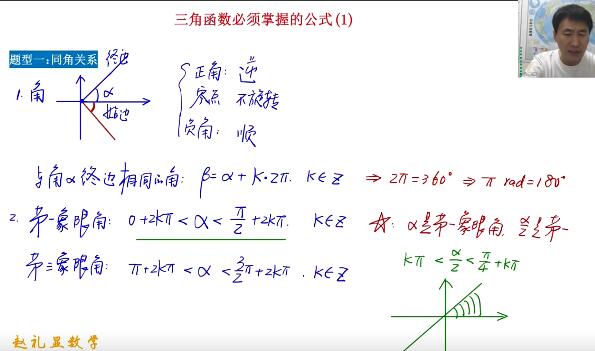 三角函数必须掌握的公式(1)
题型一:同角关系
终边
1. 角
α
始边
正角: 逆
零点 不旋转
负角: 顺
与角α终边相同的角: β=α+K·2π. K∈Z ⇒ 2π=360° ⇒ π rad=180°
2. 第一象限角: 0+2kπ<α<π/2+2kπ. K∈Z
☆: α是第一象限角, α/2是第一
第三象限角: π+2kπ<α<3/2π+2kπ. K∈Z
kπ<α/2<π/4+kπ
赵礼显数学